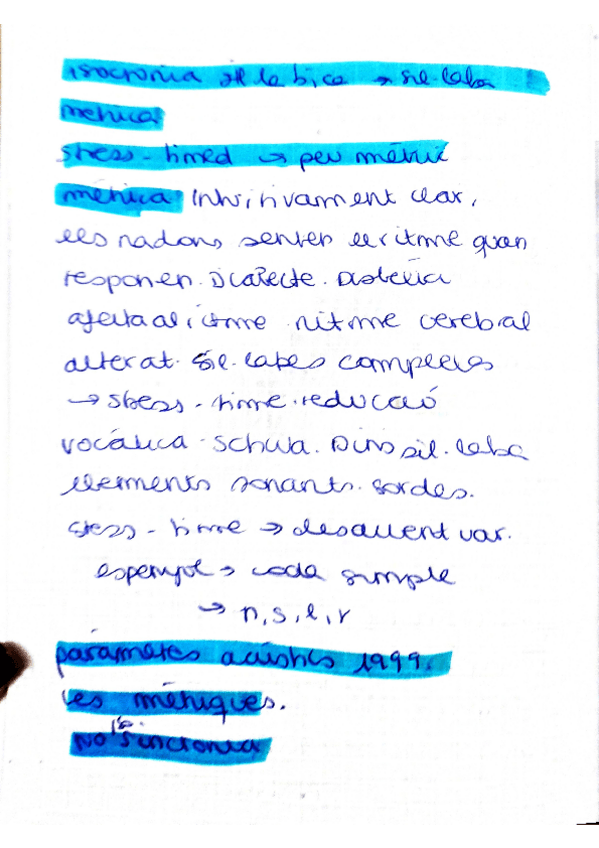 isocronia sil·labica → síl·laba
mètrica
stress-timed → peu mètric
mètrica intuitivament clar,
els nadons senten el ritme quan
responen. Dialecte. Dislèxia
afecta al ritme ritme cerebral
alterat. Síl·labes complexes
→ stress-time. reducció
vocàlica. schwa. Dins síl·laba
elements sonants. sordes.
stress-time → var.
espanyol → coda simple
→ n, s, l, r
paràmetres acústics 1999.
Les mètriques.
No sincronia